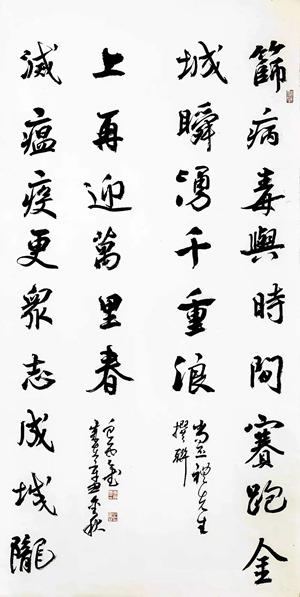 篩病毒與時間賽跑金
城瞬湧千重浪
先生
撰聯
滅瘟疫更眾志成城隴
上再迎萬里春